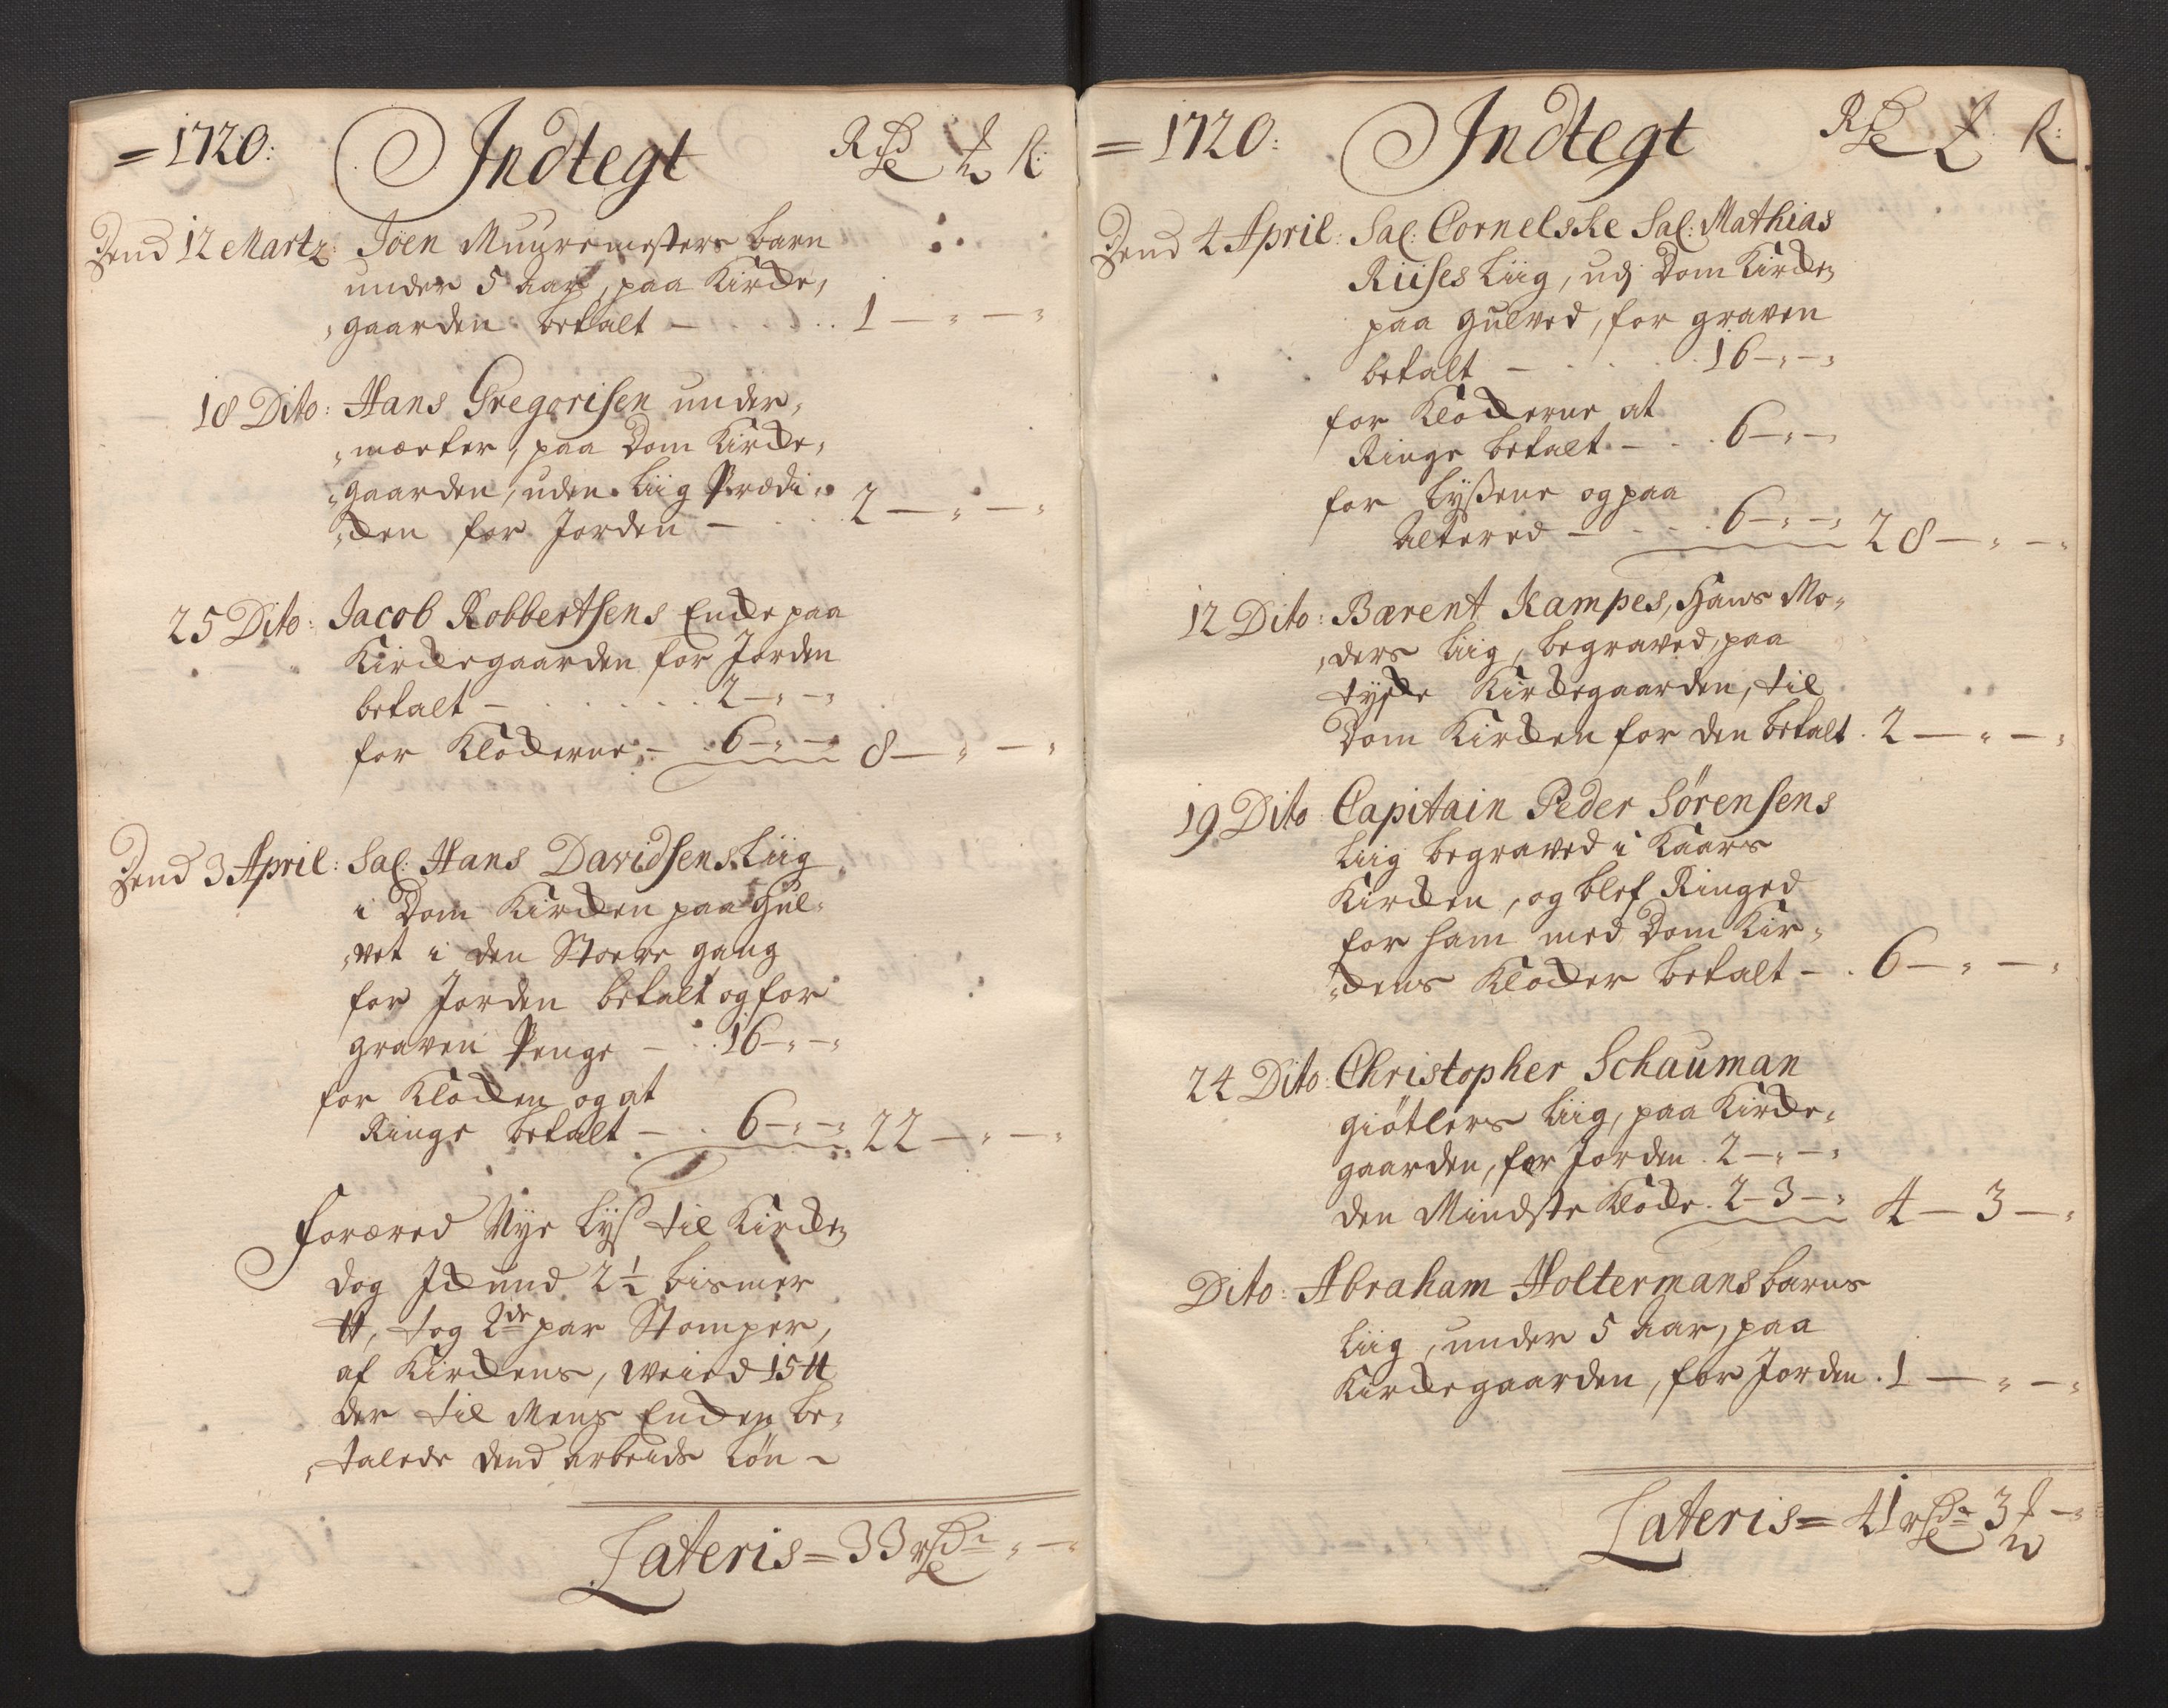 = 1720: Indtegt Rdr ℔ ß:
Dend 12 Martz: Joen Muuremesters barn
under 5 aar, paa Kircke,
gaarden betalt – 1 – " – "
18 Dito: Hans Gregorisen under,
"mærker, paa Dom Kircke,
"gaarden, uden Liig Prædi"
"cken for Jorden – 2 – " – "
25 Dito: Jacob Robbertsens Encke paa
Kirckegaarden for Jorden
betalt – 2 – " – "
for Klockerne – 6 – " – " 8 – " – "
Dend 3 April: Sal: Hans Davidsens Liig
i Dom Kircken paa Gul"
"vet i den Stoere gang
for Jorden betalt og for
graven Penge – 16 – " – "
for Klocken og at
Ringe betalt – 6 – " – " 22 – " – "
Foræred Nye Lyß til Kircken
dog Ickund 2½ bismer
℔, tog 2de par Stomper,
af Kirckens, weied 15 ℔
der til Mens Encken be"
"talede dend arbeids Løn –
Lateris = 33 rdr " – "
= 1720: Indtegt Rdr ß:
Dend 4 April: Sal: Cornelske Sal: Mathias
Riises Liig, udj Dom Kircken
paa Gulved, for graven
betalt – 16 – " – "
for Klockerne at
Ringe betalt – 6 – " – "
for Lyßene og paa
Altered – 6 – " – " 28 – " – "
12 Dito: Bærent Kampes, Hans Mo"
"ders Liig, begraved, paa
tyske Kirckegaarden, til
Dom Kircken for den betalt . 2 – " – "
19 Dito Capitain Peder Sörensens
Liig begraved i Kaars
Kircken, og blef Ringed
for ham med Dom Kir"
"ckens Klocker betalt – . 6 – " – "
24 Dito: Christopher Schauman
Giötlers Liig, paa Kircke"
gaarden, for Jorden . 2 – " – "
den Mindste Klocke . 2 – 3 – " 4 – 3 – "
Dito: Abraham Holtermans barns
Liig, under 5 aar, paa
Kirckegaarden, for Jorden . 1 – " – "
Lateris = 41 rdr 3 – "